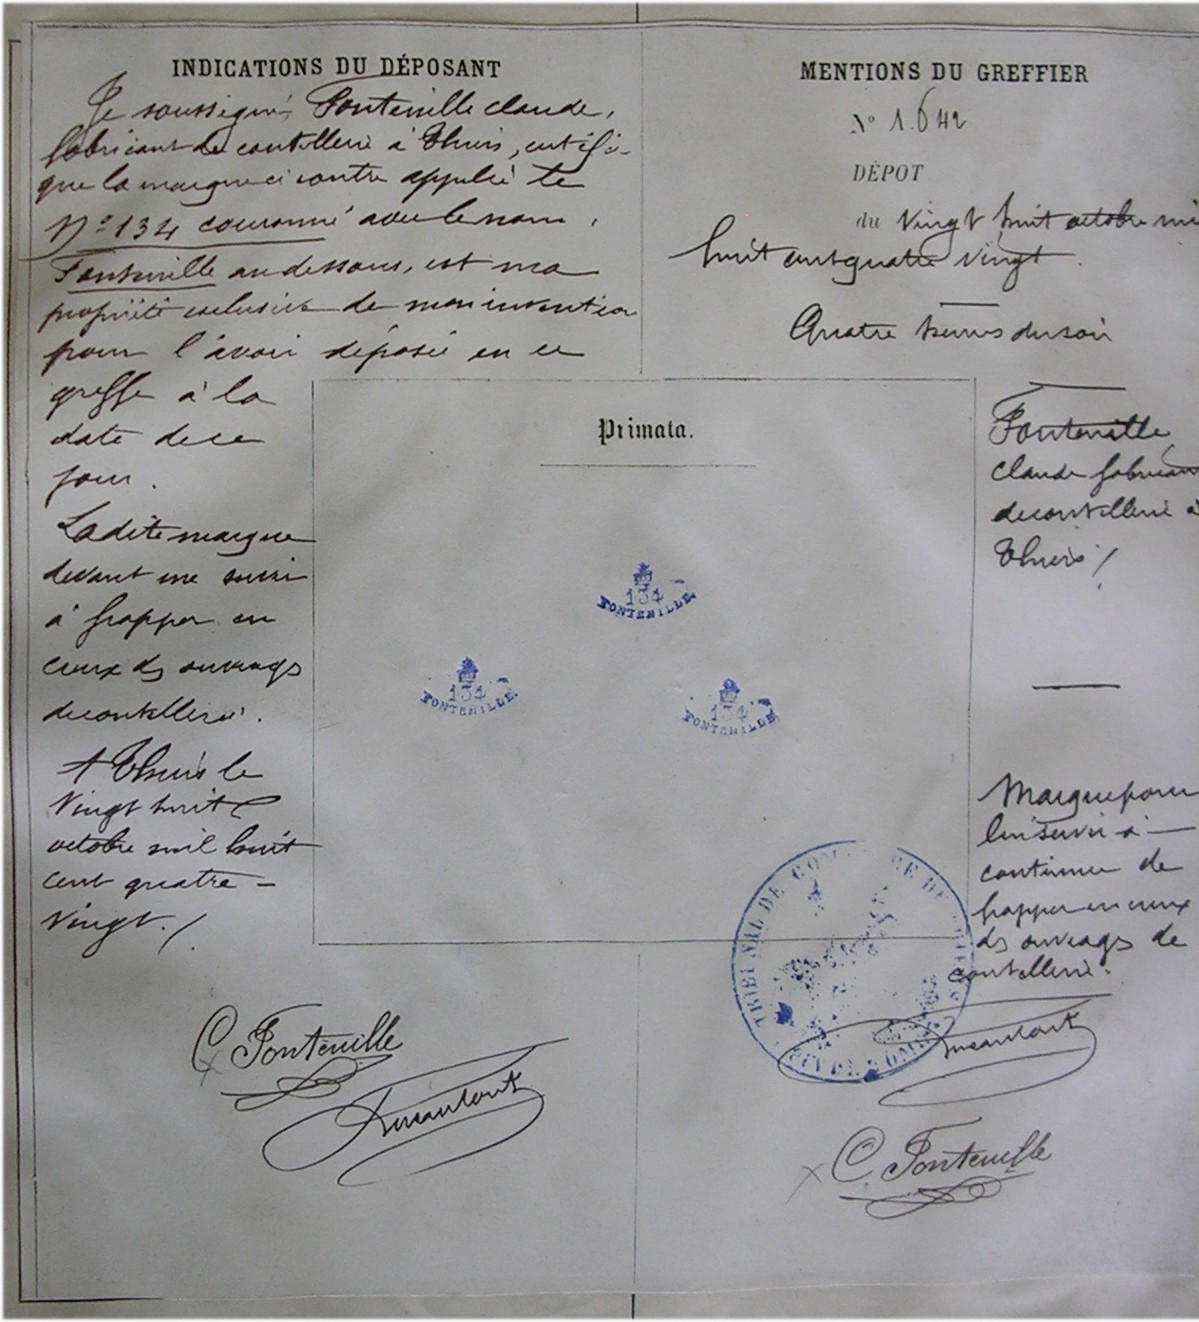 INDICATIONS DU DÉPOSANT
Je soussigné, Fontenille Claude,
fabricant de coutellerie à Thiers, certifie
que la marque ci contre appelée le
N° 134 couronné avec le nom
Fontenille au dessous, est ma
propriété exclusive de mon invention
pour l'avoir déposée en ce
greffe à la
date de ce
jour.
Ladite marque
devant me servir
à frapper en
creux des ouvrages
de coutellerie.
A Thiers le
vingt huit
octobre mil huit
cent quatre
vingt.
C. Fontenille
MENTIONS DU GREFFIER
N° 1.642
DÉPOT
du vingt huit octobre mil
huit cent quatre vingt.
Quatre heures du soir
Fontenille
Claude fabricant
de coutellerie à
Thiers
Marque pour
lui servir à
continuer de
frapper en creux
des ouvrages de
coutellerie.
C. Fontenille
Primata.
134
FONTENILLE
134
FONTENILLE
134
FONTENILLE
TRIBUNAL DE COMMERCE DE THIERS